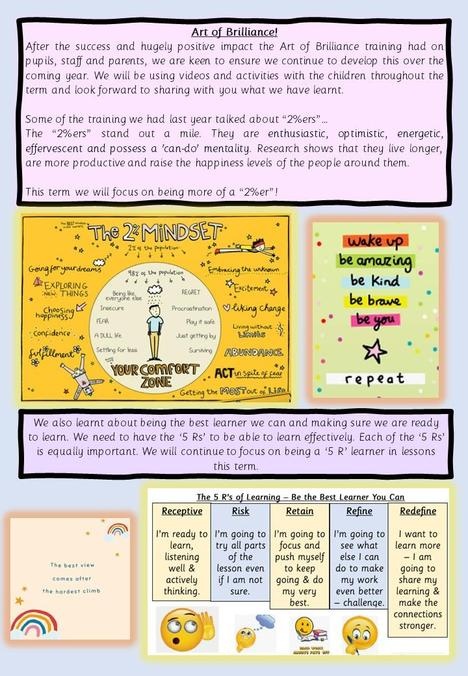 Art of Brilliance!
After the success and hugely positive impact the Art of Brilliance training had on
pupils, staff and parents, we are keen to ensure we continue to develop this over the
coming year. We will be using videos and activities with the children throughout the
term and look forward to sharing with you what we have learnt.
Some of the training we had last year talked about "2%ers"...
The "2%ers" stand out a mile. They are enthusiastic, optimistic, energetic,
effervescent and possess a 'can-do' mentality. Research shows that they live longer,
are more productive and raise the happiness levels of the people around them.
This term we will focus on being more of a "2%er"!
The 2% MINDSET
2% of the population
Going for your dreams
EXPLORING
NEW THINGS
Choosing
happiness
confidence
fulfillment
98% of the population
Being like
everyone else
Insecure
FEAR
A DULL life
Settling for less
REGRET
Procrastination
Play it safe
Just getting by
Surviving
YOUR COMFORT
ZONE
Embracing the unknown
Excitement
liking change
Living without
Limits
ABUNDANCE
ACT in spite of fear
Getting the MOST out of
wake up
be amazing
be kind
be brave
be you
repeat
We also learnt about being the best learner we can and making sure we are ready
to learn. We need to have the '5 Rs' to be able to learn effectively. Each of the '5 Rs'
is equally important. We will continue to focus on being a '5 R' learner in lessons
this term.
The best view
comes after
the hardest climb
The 5 R's of Learning – Be the Best Learner You Can
Receptive
I'm ready to
learn,
listening
well &
actively
thinking.
Risk
I'm going to
try all parts
of the
lesson even
if I am not
sure.
Retain
I'm going to
focus and
push myself
to keep
going & do
my very
best.
Refine
I'm going to
see what
else I can
do to make
my work
even better
– challenge.
Redefine
I want to
learn more
– I am
going to
share my
learning &
make the
connections
stronger.
HARD WORK
ALWAYS PAYS OFF